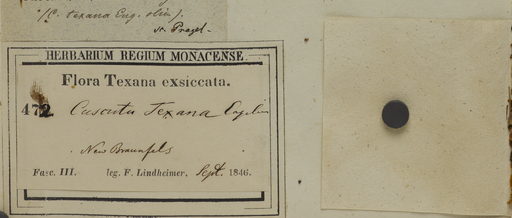 (C. texana Eng. olim).
v. Pragel.
HERBARIUM REGIUM MONACENSE.
Flora Texana exsiccata.
472 Cuscuta Texana Engelm
New Braunfels
Fasc. III. leg. F. Lindheimer, Sept. 1846.